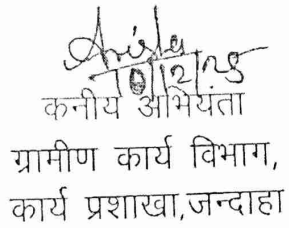 10/12/25
कनीय अभियंता
ग्रामीण कार्य विभाग,
कार्य प्रशाखा,जन्दाहा